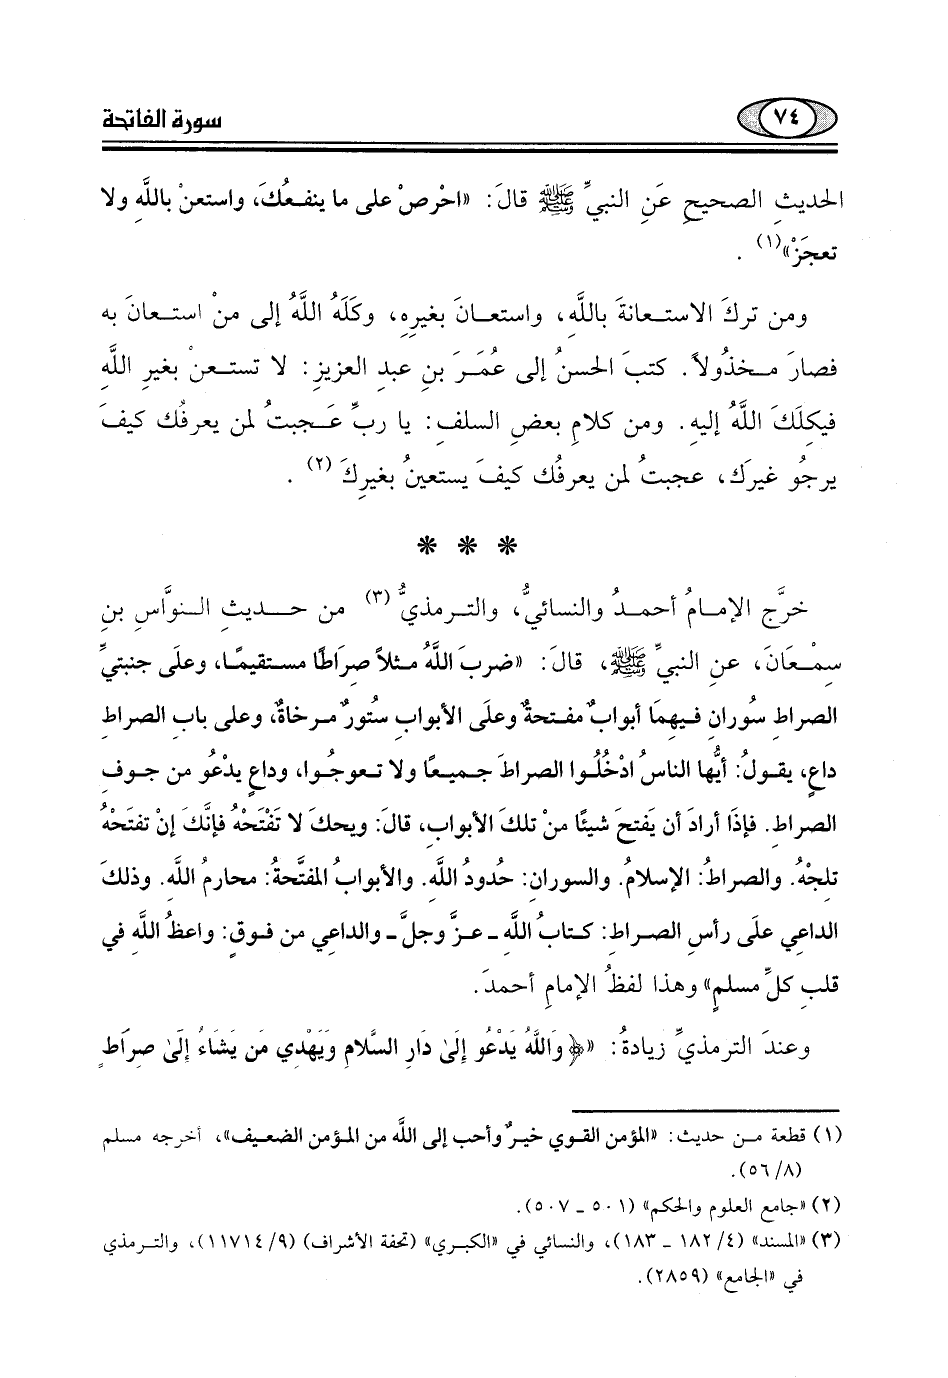 ٧٤
سورة الفاتحة
الحديثِ الصحيحِ عَنِ النبيِّ ﷺ قالَ: «احْرصْ على ما ينفعُكَ، واستعنْ باللَّهِ ولا
تعجَزْ»(١) .
ومن تركَ الاستعانةَ باللَّهِ، واستعانَ بغيرِه، وكَلَهُ اللَّهُ إلى منْ استعانَ به
فصارَ مخذُولاً. كتبَ الحسنُ إلى عُمَرَ بنِ عبدِ العزيزِ: لا تستعنْ بغيرِ اللَّهِ
فيكلَكَ اللَّهُ إليهِ. ومن كلامِ بعضِ السلفِ: يا ربِّ عَجبتُ لمن يعرفُك كيفَ
يرجُو غيرَك، عجبتُ لمن يعرفُك كيفَ يستعينُ بغيرِكَ(٢) .
* * *
خرَّج الإمامُ أحمدُ والنسائيُّ، والترمذيُّ(٣) من حديثِ النوَّاسِ بنِ
سِمْعَانَ، عنِ النبيِّ ﷺ، قالَ: «ضربَ اللَّهُ مثلاً صِرَاطًا مستقيمًا، وعلَى جنبتيِّ
الصراطِ سُورانِ فيهِمَا أبوابٌ مفتحةٌ وعلَى الأبوابِ ستُورٌ مرخاةٌ، وعلى بابِ الصراطِ
داعٍ، يقولُ: أيُّها الناسُ ادْخُلُوا الصراطَ جميعًا ولا تعوجُوا، وداعٍ يدْعُو من جوفِ
الصراطِ. فإذَا أرادَ أن يَفتحَ شيئًا منْ تلكَ الأبوابِ، قالَ: ويحكَ لا تَفْتَحْهُ فإنَّكَ إنْ تفتَحْهُ
تلجْهُ. والصراطُ: الإسلامُ. والسورانِ: حُدودُ اللَّهِ. والأبوابُ المفتَّحةُ: محارمُ اللَّهِ. وذلكَ
الداعِي علَى رأسِ الصراطِ: كتابُ اللَّهِ ـ عزَّ وجلَّ ـ والداعِي من فوقٍ: واعظُ اللَّهِ في
قلبِ كلِّ مسلمٍ» وهذا لفظُ الإمامِ أحمدَ.
وعندَ الترمذيِّ زيادةُ: «﴿وَاللَّهُ يَدْعُو إِلَىٰ دَارِ السَّلامِ وَيَهْدِي مَن يَشَاءُ إِلَىٰ صِرَاطٍ
(١) قطعة من حديث: «المؤمن القوي خيرٌ وأحب إلى اللَّه من المؤمن الضعيف»، أخرجه مسلم
(٥٦/٨).
(٢) «جامع العلوم والحكم» (٥٠١ ـ ٥٠٧).
(٣) «المسند» (٤/ ١٨٢ ـ ١٨٣)، والنسائي في «الكبرى» (تحفة الأشراف) (١١٧١٤/٩)، والترمذي
في «الجامع» (٢٨٥٩).